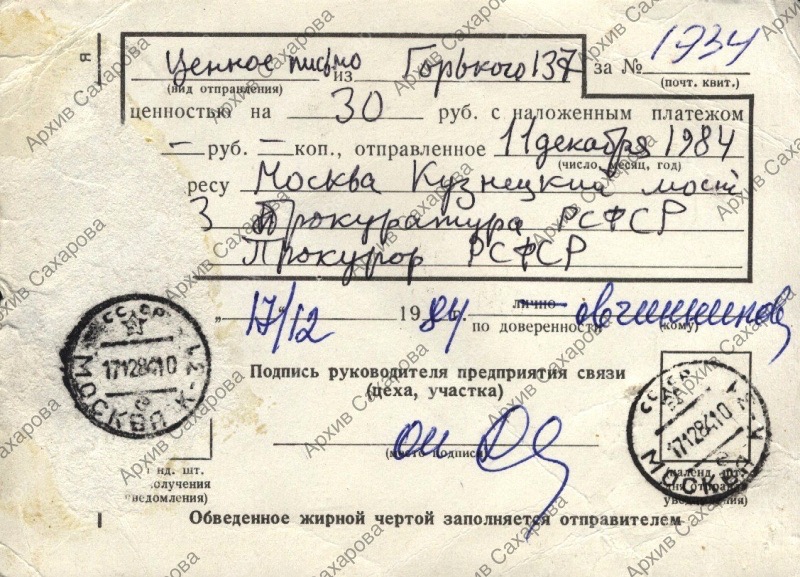 Я
Ценное письмо из Горького 137 за № 1734
(вид отправления) (почт. квит.)
ценностью на 30 руб. с наложенным платежом
— руб. — коп., отправленное 11 декабря 1984
(число, месяц, год)
ресу Москва Кузнецкий мост
3 Прокуратура РСФСР
Прокурор РСФСР
„ 17/12 1984 г. лично Овчинников
по доверенности (кому)
Подпись руководителя предприятия связи
(цеха, участка)
(место подписи)
СССР МОСКВА К-31 17128410
СССР МОСКВА 17128410
нд. шт. (календ. шт.
олучения дня отправки
ведомления) уведомления)
Обведенное жирной чертой заполняется отправителем
Архив Сахарова